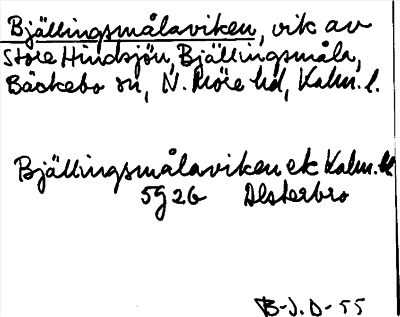 Bjällingsmålaviken, vik av
Store Hindsjön, Bjällingsmåla,
Bäckebo sn, N. Möre hd, Kalm. l.
Bjällingsmålaviken ek Kalm. l
5g 2b Alsterbro
B-J.D-55